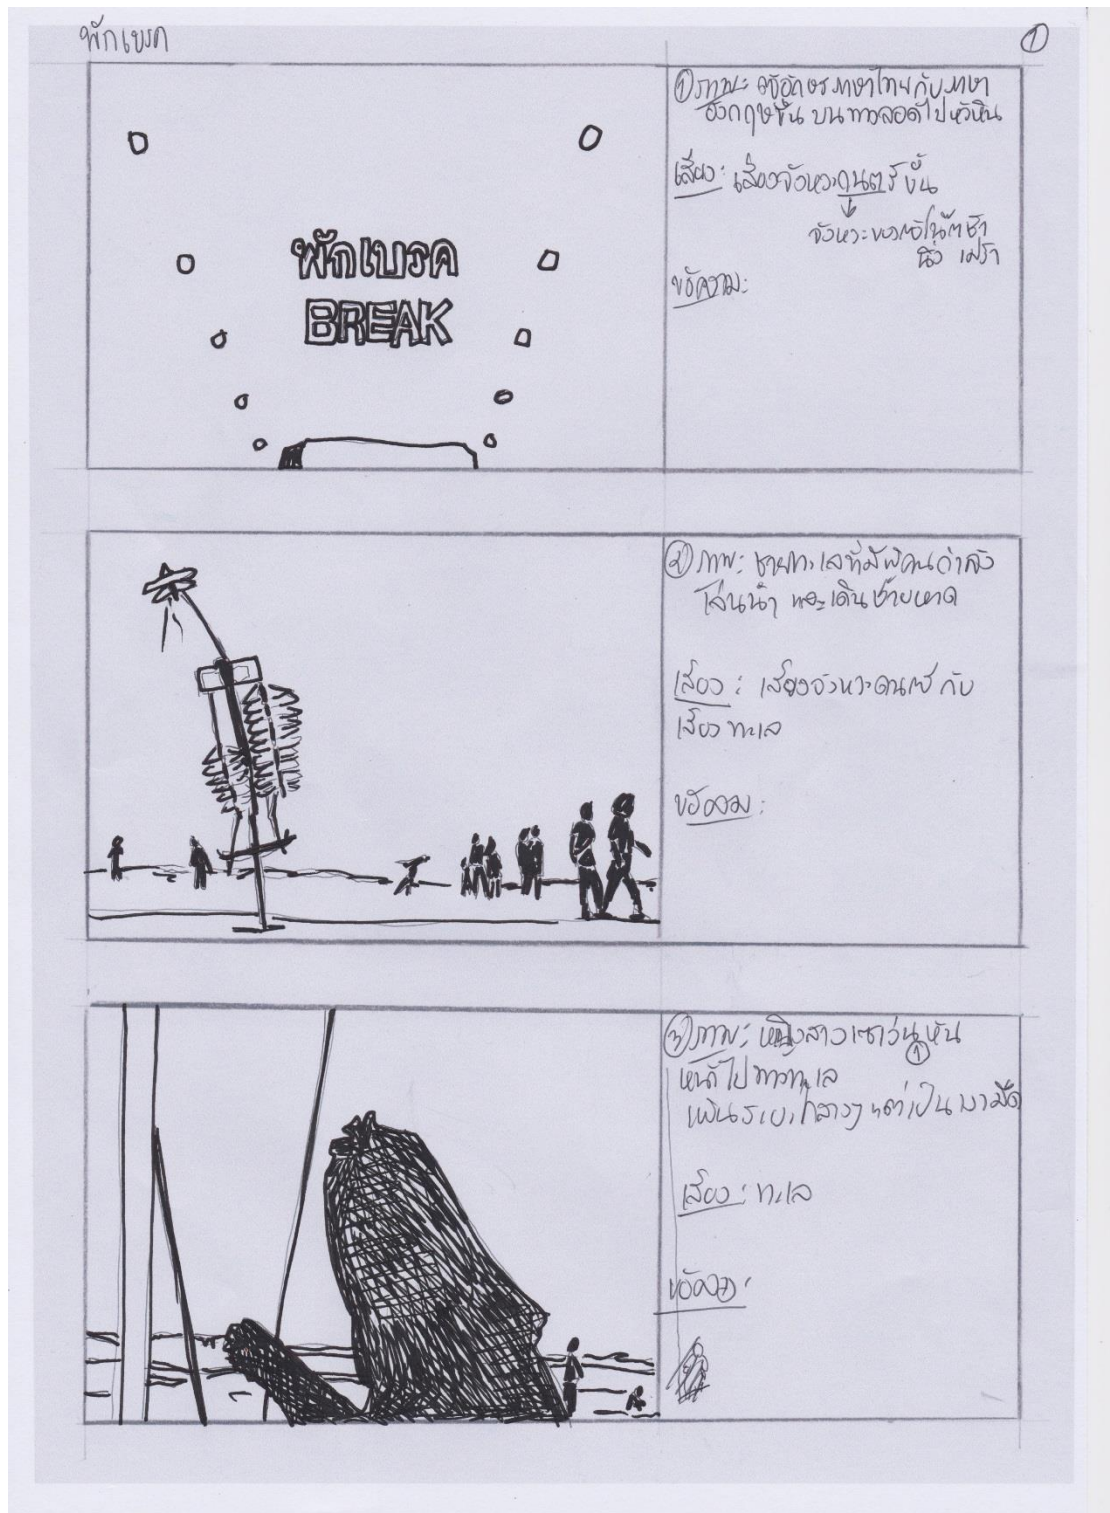 พักเบรค
①
พักเบรค
BREAK
① ภาพ: ตัวอักษรภาษาไทยกับภาษา
อังกฤษขึ้น บนทางลอดไปหัวหิน
เสียง: เสียงจังหวะดนตรี ขึ้น
จังหวะของตัวโน๊ตช้า
นิ่ง เศร้า
ข้อความ:
② ภาพ: ชายทะเลที่มีผู้คนกำลัง
เล่นน้ำ และเดินชายหาด
เสียง: เสียงจังหวะดนตรี กับ
เสียงทะเล
ข้อความ:
③ ภาพ: หญิงสาว หัน
หน้าไปทางทะเล
เห็นระยะกลางๆ แต่เป็นเงามืด
เสียง: ทะเล
ข้อความ: